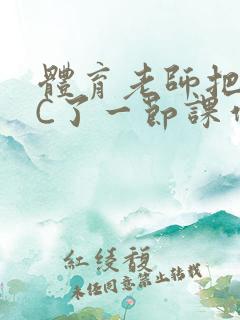 體育老師把
C了一節課
紅綾馥
未經同意禁止轉載